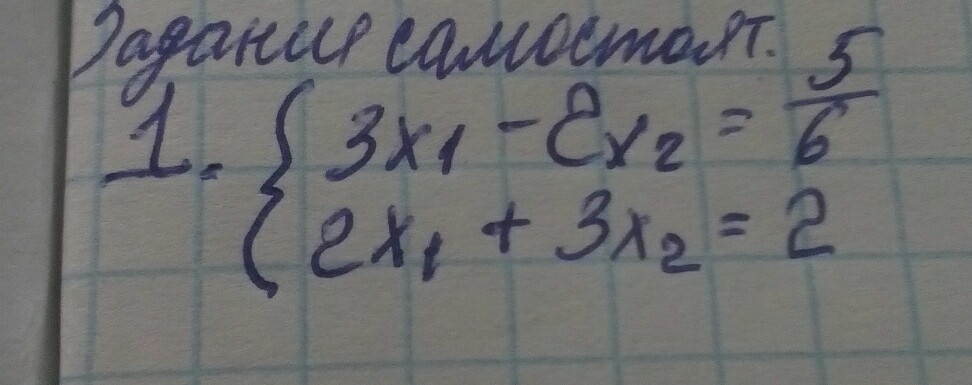 Задания самостоят.
1. { 3x₁ - 2x₂ = 5/6
2x₁ + 3x₂ = 2